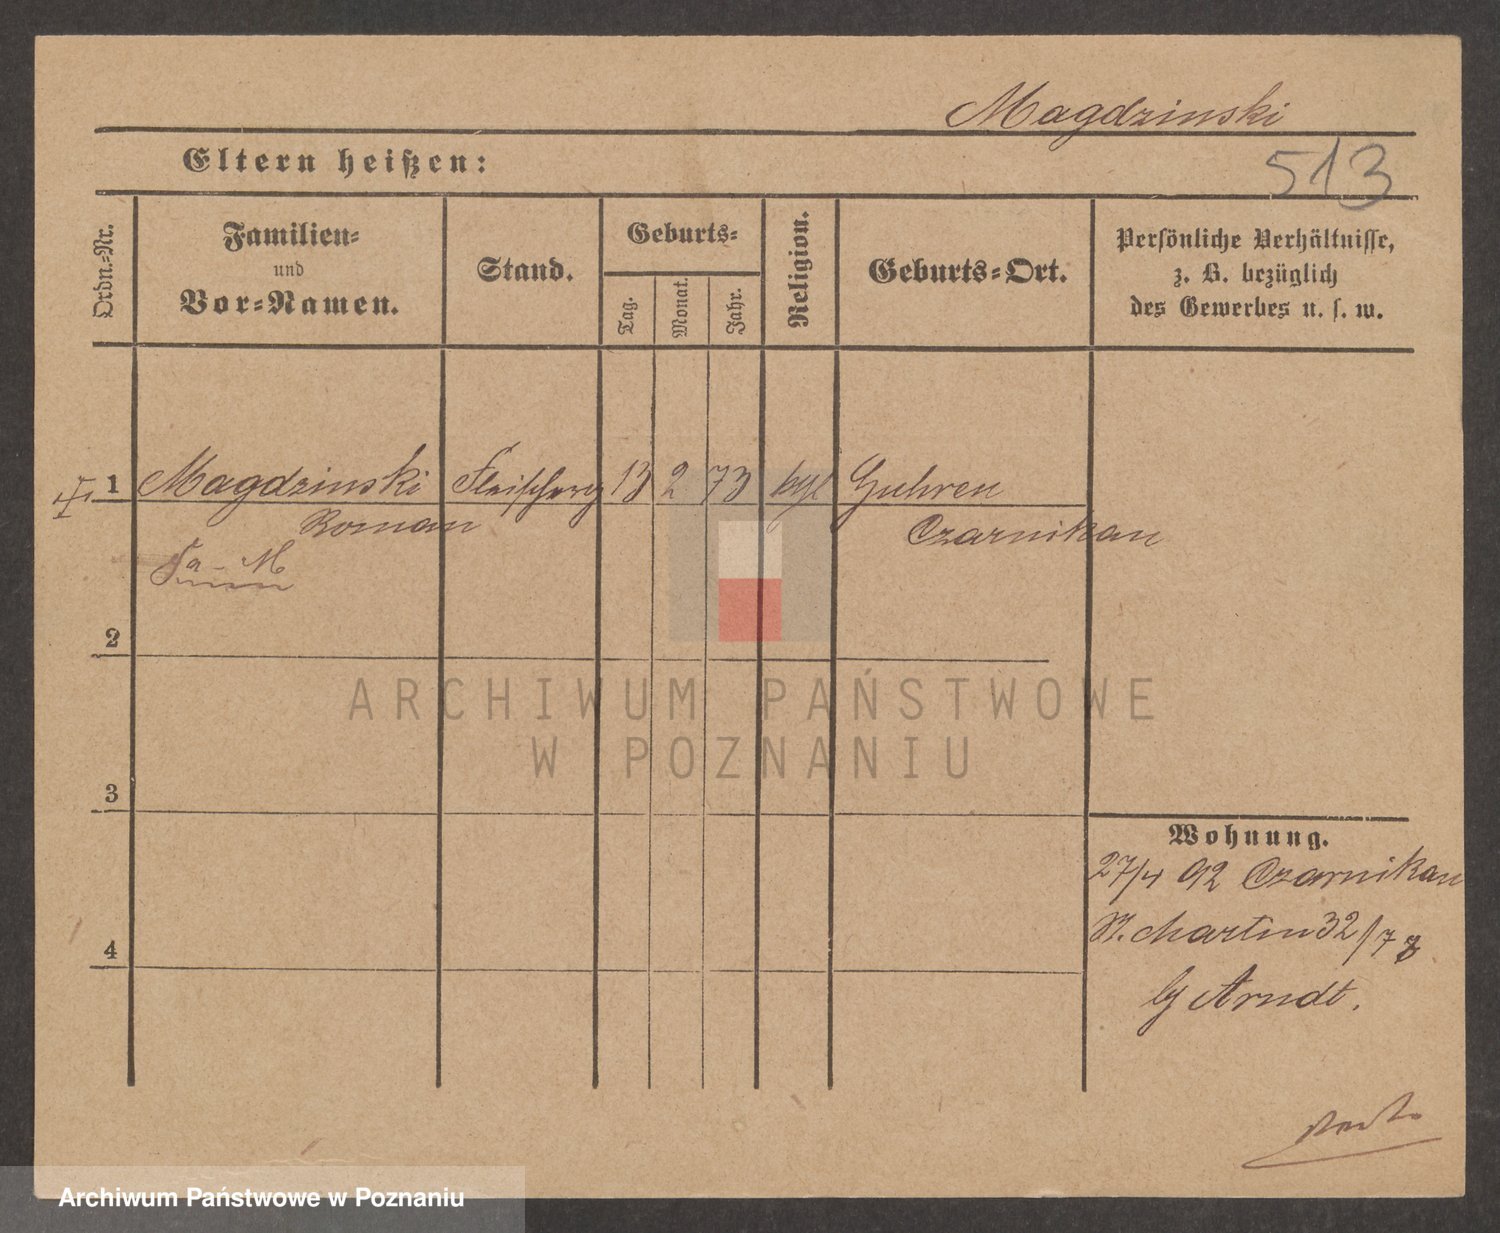 Magdzinski
Eltern heißen:
513
Ordn.-Nr.
Familien-
und
Vor-Namen.
Stand.
Geburts-
Tag.
Monat.
Jahr.
Religion.
Geburts-Ort.
Persönliche Verhältnisse,
z. B. bezüglich
des Gewerbes u. s. w.
1 Magdzinski Fleischerg 13 2 73 kgl Guhren
Roman Czarnikau
2
3
4
Wohnung.
27/4 92 Czarnikau
St. Martin 32/7 8
Arndt.
ARCHIWUM PAŃSTWOWE
W POZNANIU
Archiwum Państwowe w Poznaniu